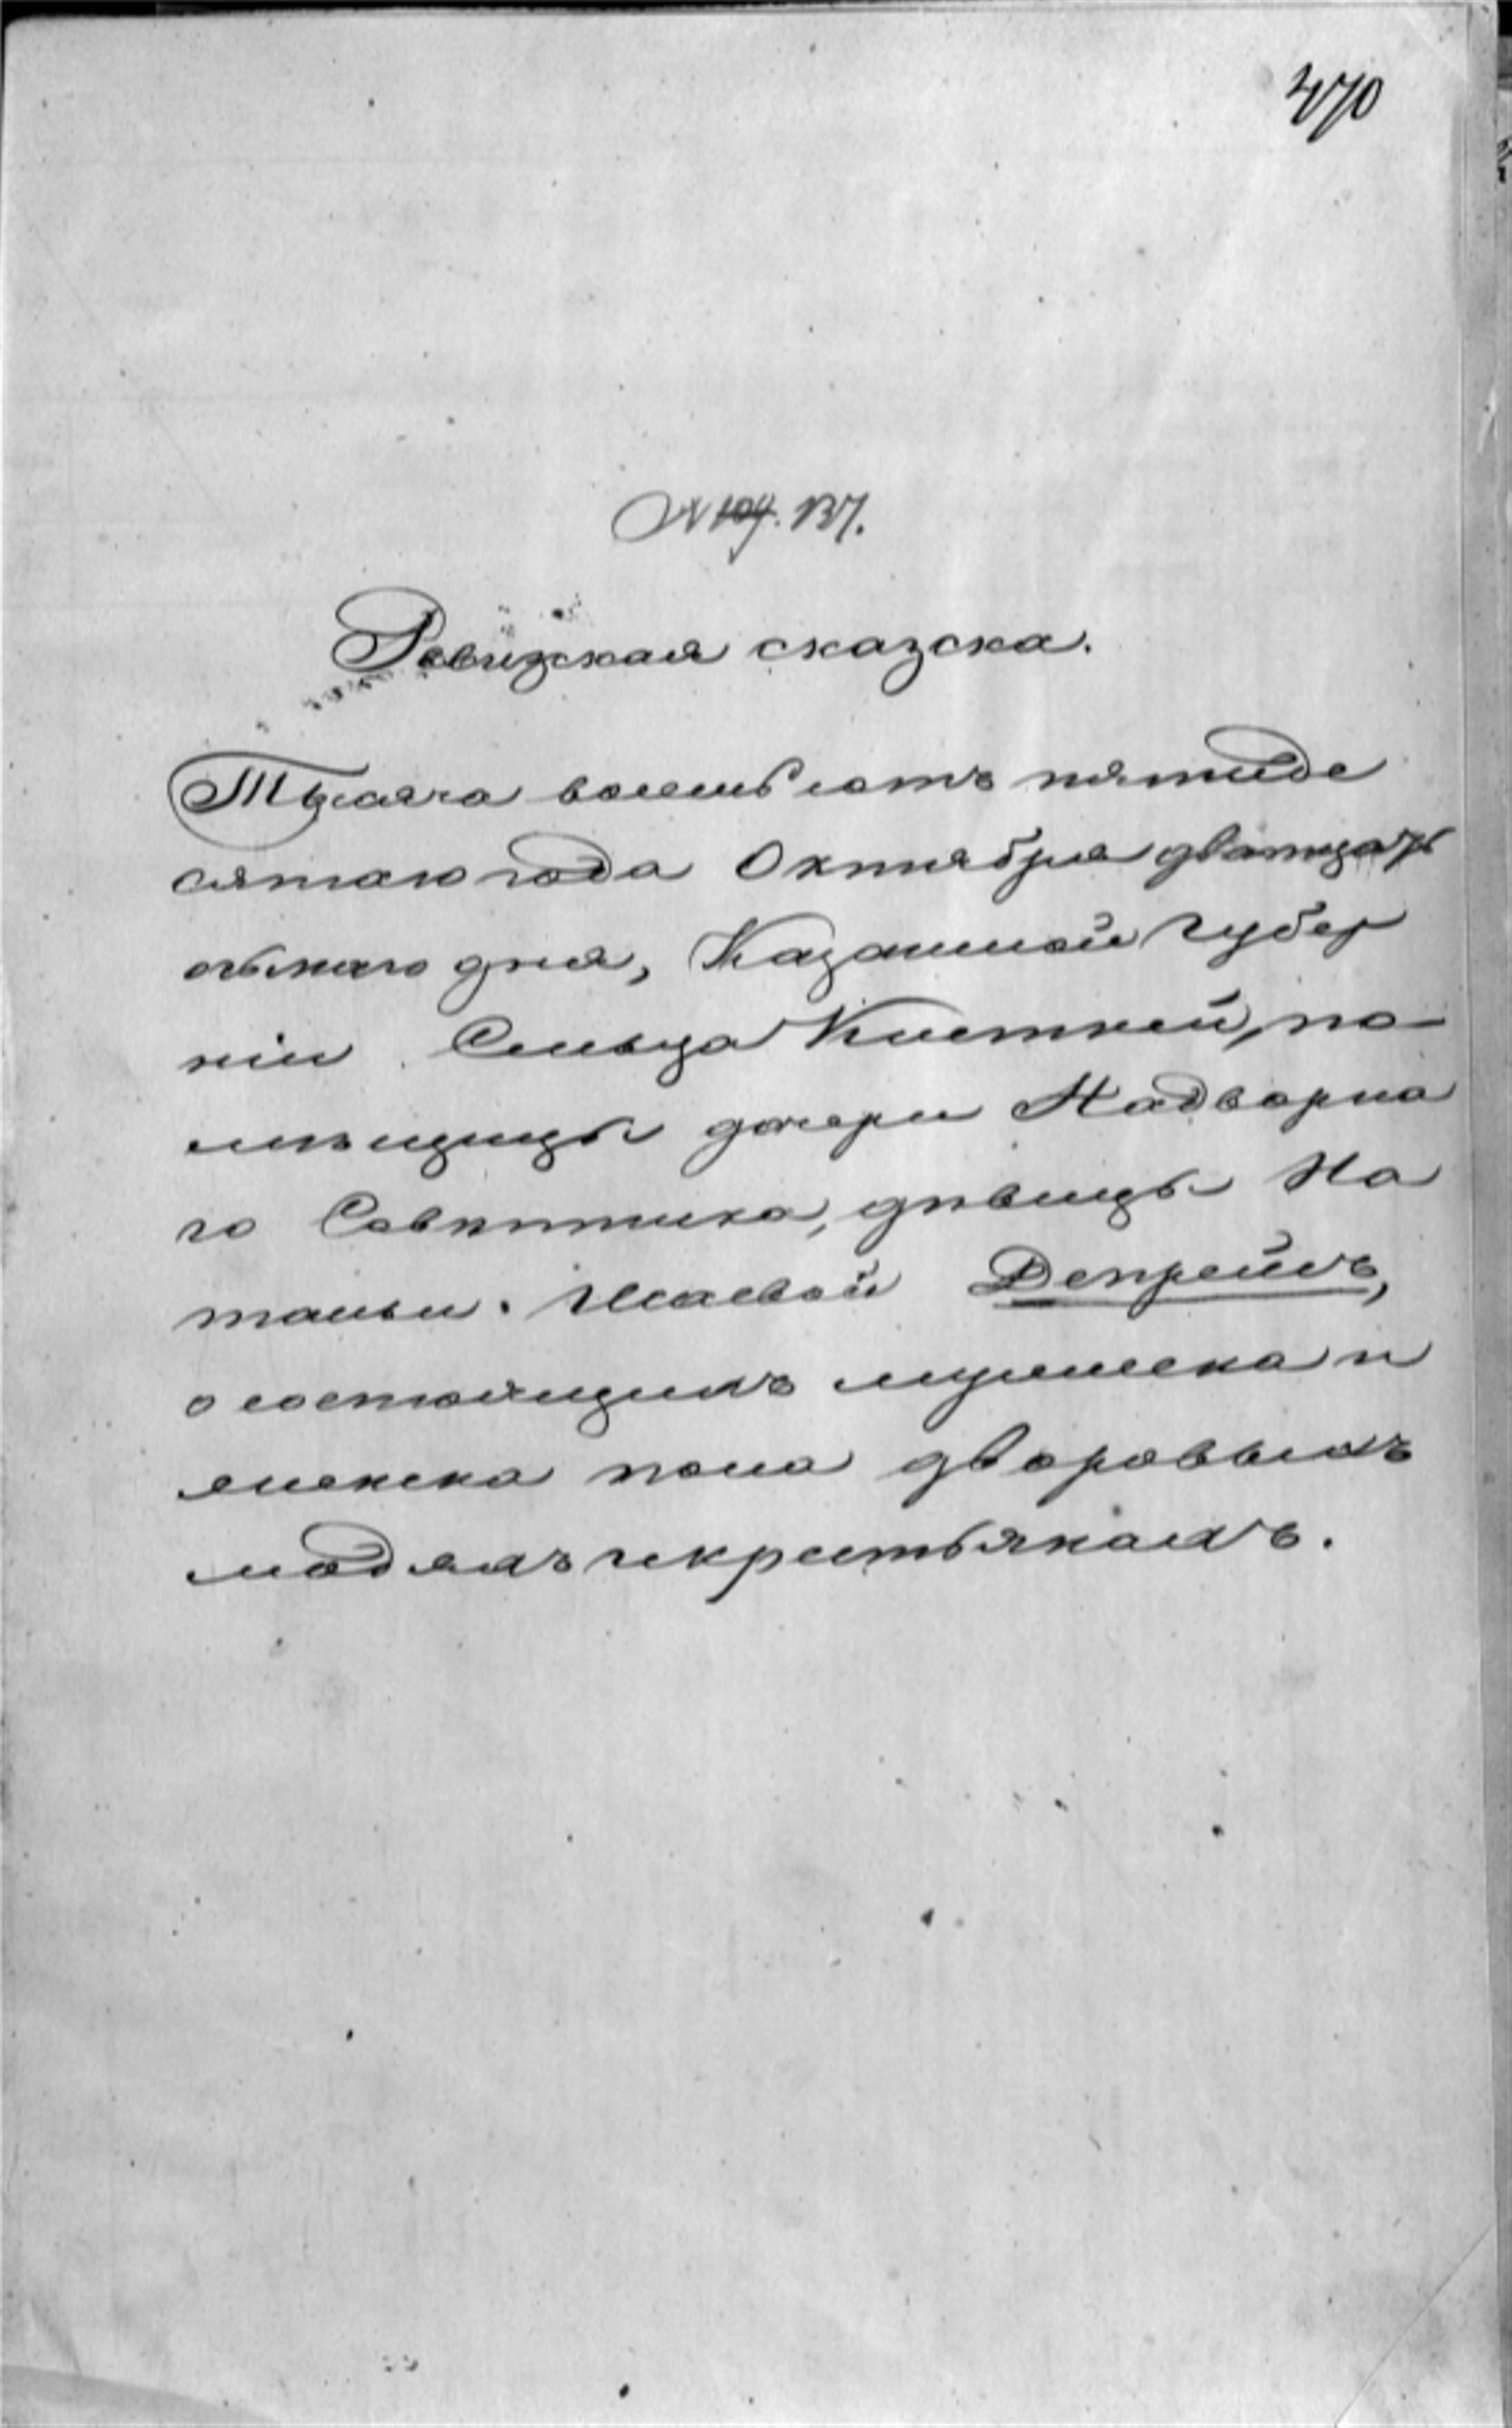 470
N 104. 137.
Ревижская сказска.
Тысяча восемьсотъ пятиде
сятаго года Октября дватцать
осьмаго дня, Казанской Губер
ніи Сельца Киетней, по-
мѣщицы дочери Надворна
го Совѣтника, дѣвицы На
тальи. Исаевой Депрейсъ,
о состоящихъ мужеска и
женска пола дворовымъ
людямъ и крестьянамъ.